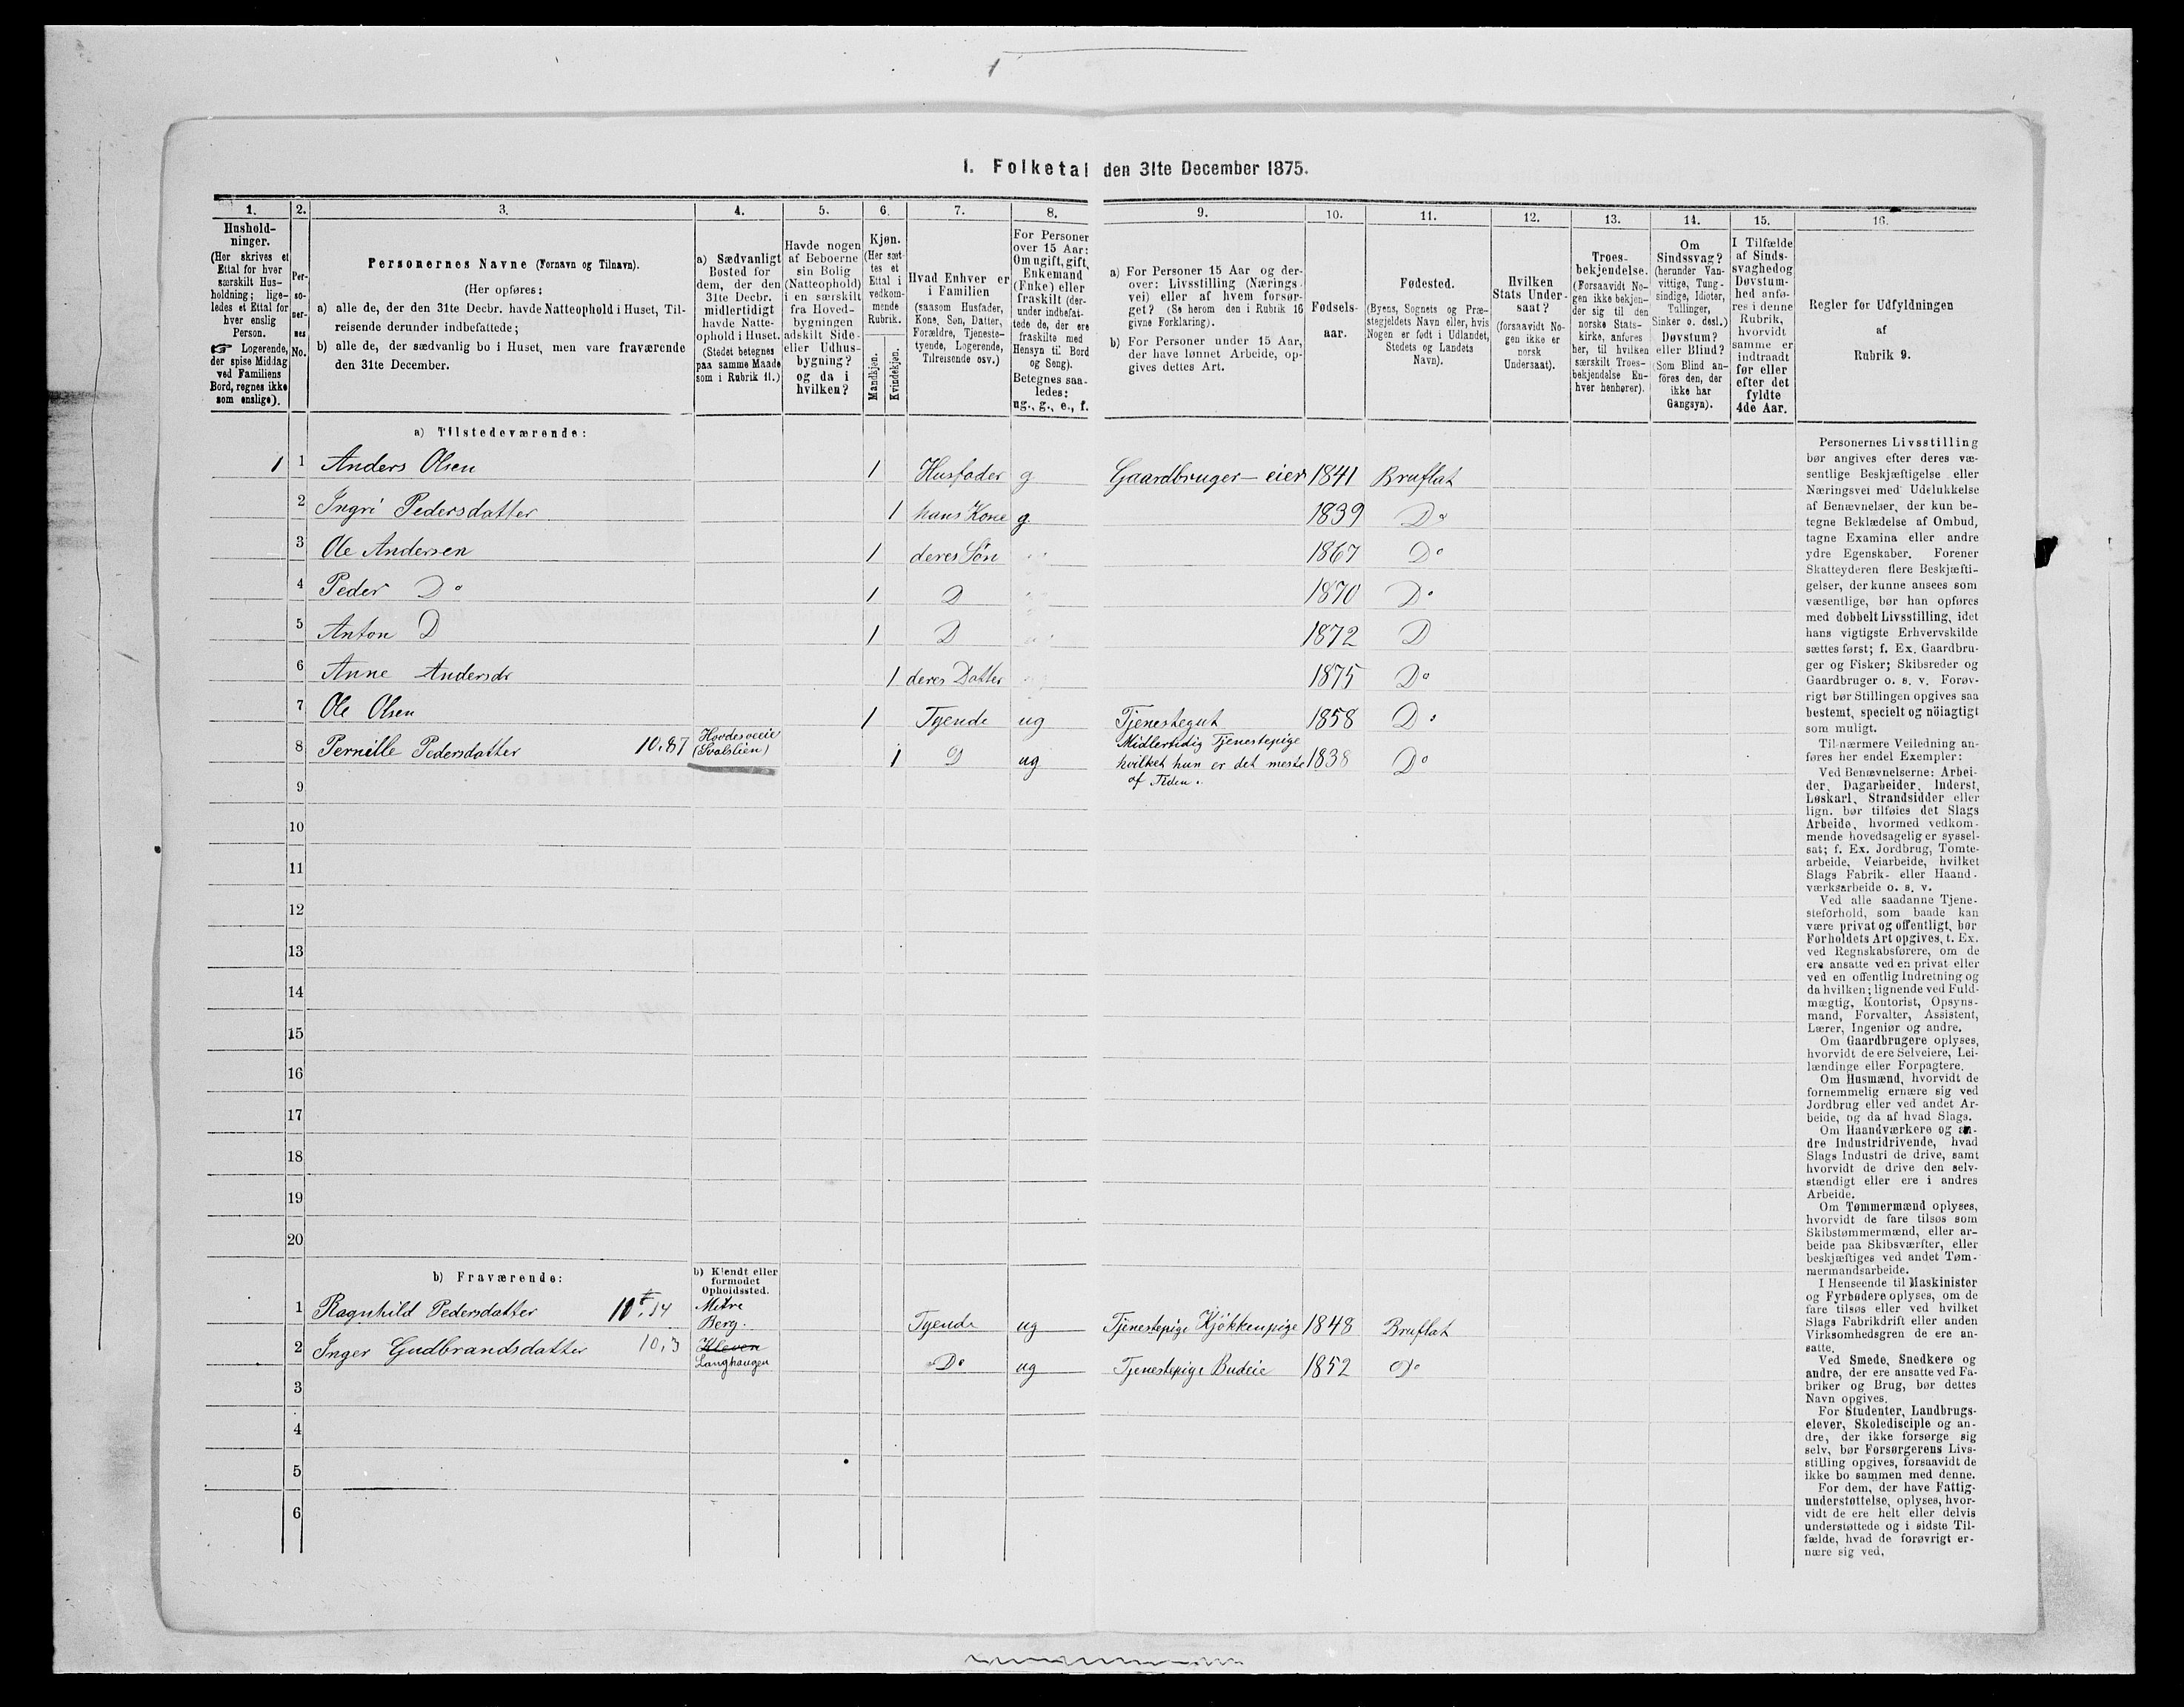 1. Folketal den 31te December 1875.
1. 2. 3. 4. 5. 6. 7. 8. 9. 10. 11. 12. 13. 14. 15. 16.
Hushold-
ninger.
(Her skrives et
Ettal for hver
særskilt Hus-
holdning; lige-
ledes et Ettal for
hver enslig
Person.
☞ Logerende,
der spise Middag
ved Familiens
Bord, regnes ikke
som enslige).
Per-
so-
ner-
nes
No.
Personernes Navne (Fornavn og Tilnavn).
(Her opføres:
a) alle de, der den 31te Decbr. havde Natteophold i Huset, Til-
reisende derunder indbefattede;
b) alle de, der sædvanlig bo i Huset, men vare fraværende
den 31te December.
a) Sædvanligt
Bosted for
dem, der den
31te Decbr.
midlertidigt
havde Natte-
ophold i Huset.
(Stedet betegnes
paa samme Maade
som i Rubrik 11.)
Havde nogen
af Beboerne
sin Bolig
(Natteophold)
i en særskilt
fra Hoved-
bygningen
adskilt Side-
eller Udhus-
bygning?
og da i
hvilken?
Kjøn.
(Her sæt-
tes et
Ettal i
vedkom-
mende
Rubrik.
Mandkjøn.
Kvindekjøn.
Hvad Enhver er
i Familien
(saasom Husfader,
Kone, Søn, Datter,
Forældre, Tjeneste-
tyende, Logerende,
Tilreisende osv.)
For Personer
over 15 Aar:
Om ugift, gift,
Enkemand
(Enke) eller
fraskilt (der-
under indbefat-
tede de, der ere
fraskilte med
Hensyn til Bord
og Seng).
Betegnes saa-
ledes:
ug., g., e., f.
a) For Personer 15 Aar og der-
over: Livsstilling (Nærings-
vei) eller af hvem forsør-
get? (Se herom den i Rubrik 16
givne Forklaring).
b) For Personer under 15 Aar,
der have lønnet Arbeide, op-
gives dettes Art.
Fødsels-
aar.
Fødested.
(Byens, Sognets og Præ-
stegjeldets Navn eller, hvis
Nogen er født i Udlandet,
Stedets og Landets
Navn).
Hvilken
Stats Under-
saat?
(forsaavidt No-
gen ikke er
norsk
Undersaat).
Troes-
bekjendelse.
(Forsaavidt No-
gen ikke bekjen-
der sig til den
norske Stats-
kirke, anføres
her, til hvilken
særskilt Troes-
bekjendelse En-
hver henhører).
Om
Sindssvag?
(herunder Van-
vittige, Tung-
sindige, Idioter,
Tullinger,
Sinker o. desl.)
Døvstum?
eller Blind?
(Som Blind an-
føres den, der
ikke har
Gangsyn).
I Tilfælde
af Sinds-
svaghed og
Døvstum-
hed anfø-
res i denne
Rubrik,
hvorvidt
samme er
indtraadt
før eller
efter det
fyldte
4de Aar.
Regler for Udfyldningen
af
Rubrik 9.
a) Tilstedeværende:
1 1 Anders Olsen 1 Husfader g Gaardbruger - eier 1841 Bruflat
2 Ingri Pedersdatter 1 hans Kone g. 1839 Do
3 Ole Andersen 1 deres Søn 1867 Do
4 Peder Do 1 D 1870 Do
5 Anton D 1 D 1872 D
6 Anne Andersdr 1 deres Datter 1875 Do
7 Ole Olsen 1 Tyende ug Tjenestegut 1858 Do
8 Pernille Pedersdatter 10.87 Hovdesveie (Svalslien) 1 D ug Midlertidig Tjenestepige hvilket hun er det meste af Tiden. 1838 Do
9
10
11
12
13
14
15
16
17
18
19
20
b) Fraværende:
b) Kjendt eller
formodet
Opholdssted.
1 Ragnhild Pedersdatter 14 Berg. Tyende ug Tjenestepige Kjøkkenpige 1848 Bruflat
2 Inger Gudbrandsdatter 10.3 Kleven Langhaugen Do ug Tjenestepige Budeie 1852 Do
3
4
5
6
Personernes Livsstilling
bør angives efter deres væ-
sentlige Beskjæftigelse eller
Næringsvei med Udelukkelse
af Benævnelser, der kun be-
tegne Beklædelse af Ombud,
tagne Examina eller andre
ydre Egenskaber. Forener
Skatteyderen flere Beskjæfti-
gelser, der kunne ansees som
væsentlige, bør han opføres
med dobbelt Livsstilling, idet
hans vigtigste Erhvervskilde
sættes først; f. Ex. Gaardbru-
ger og Fisker; Skibsreder og
Gaardbruger o. s. v. Forøv-
rigt bør Stillingen opgives saa
bestemt, specielt og nöiagtigt
som muligt.
Til nærmere Veiledning an-
føres her endel Exempler:
Ved Benævnelserne: Arbei-
der, Dagarbeider, Inderst,
Løskarl, Strandsidder eller
lign. bør tilføies det Slags
Arbeide, hvormed vedkom-
mende hovedsagelig er syssel-
sat; f. Ex. Jordbrug, Tomte-
arbeide, Veiarbeide, hvilket
Slags Fabrik- eller Haand-
værksarbeide o. s. v.
Ved alle saadanne Tjene-
steforhold, som baade kan
være privat og offentligt, bør
Forholdets Art opgives, t. Ex.
ved Regnskabsførere, om de
ere ansatte ved en privat eller
ved en offentlig Indretning og
da hvilken; lignende ved Fuld-
mægtig, Kontorist, Opsyns-
mand, Forvalter, Assistent,
Lærer, Ingeniør og andre.
Om Gaardbrugere oplyses,
hvorvidt de ere Selveiere, Lei-
lændinge eller Forpagtere.
Om Husmænd, hvorvidt de
fornemmelig ernære sig ved
Jordbrug eller ved andet Ar-
beide, og da af hvad Slags.
Om Haandværkere og an-
dre Industridrivende, hvad
Slags Industri de drive, samt
hvorvidt de drive den selv-
stændigt eller ere i andres
Arbeide.
Om Tømmermænd oplyses,
hvorvidt de fare tilsøs som
Skibstømmermænd, eller ar-
beide paa Skibsværfter, eller
beskjæftiges ved andet Tøm-
mermandsarbeide.
I Henseende til Maskinister
og Fyrbødere oplyses, om de
fare tilsøs eller ved hvilket
Slags Fabrikdrift eller anden
Virksomhedsgren de ere an-
satte.
Ved Smede, Snedkere og
andre, der ere ansatte ved Fa-
briker og Brug, bør dettes
Navn opgives.
For Studenter, Landbrugs-
elever, Skoledisciple og an-
dre, der ikke forsørge sig
selv, bør Forsørgerens Livs-
stilling opgives, forsaavidt de
ikke bo sammen med denne.
For dem, der have Fattig-
understøttelse, oplyses, hvor-
vidt de ere helt eller delvis
understøttede og i sidste Til-
fælde, hvad de forøvrigt er-
nære sig ved.